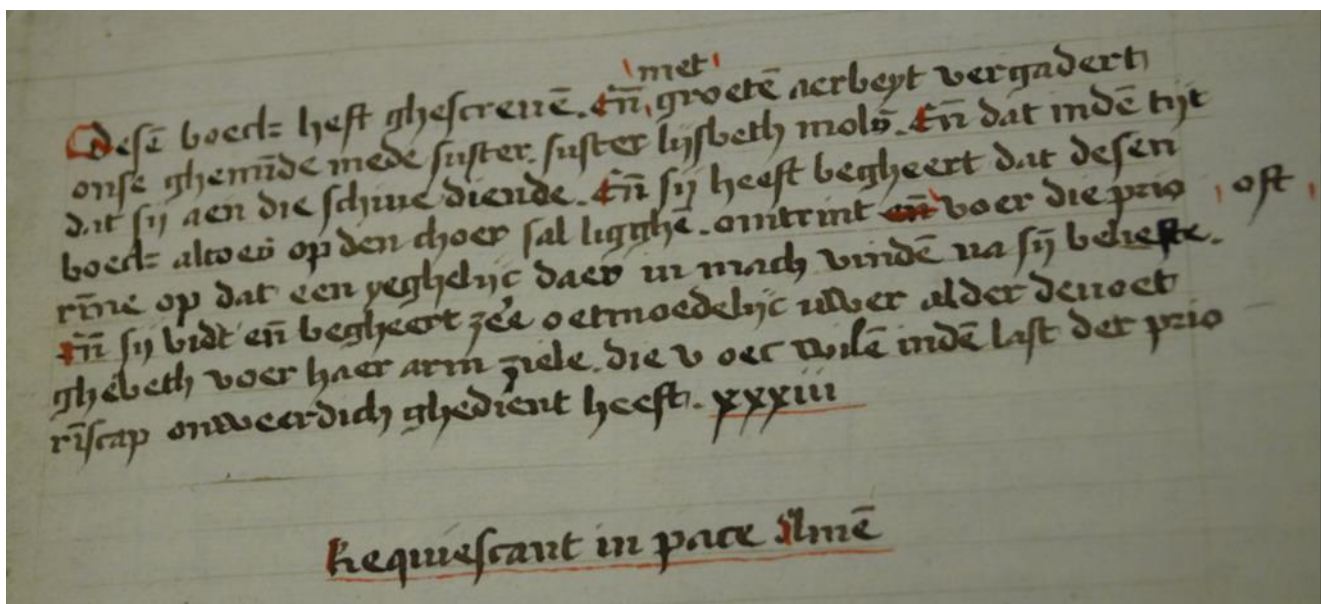 met
Desē boeck heft ghescreuē. Eñ groetē aerbeyt vergadert
onse ghemīde mede suster. suster lijsbeth mol9. Eñ dat indē tijt
dat sij aen die schiue diende. Eñ sij heeft begheert dat desen
boeck altoes op den choer sal ligghē. omtrint eñ voer die prio oft
rīne op dat een yeghelijc daer in mach vindē na sij beliefte.
Eñ sij bidt eñ begheert zee oetmoedelijc uwer alder deuoet
ghebeth voer haer arm ziele. die v oec wilē indē last der prio
rīscap onweerdich ghedient heeft. xxxiii
Requiescant in pace Amē